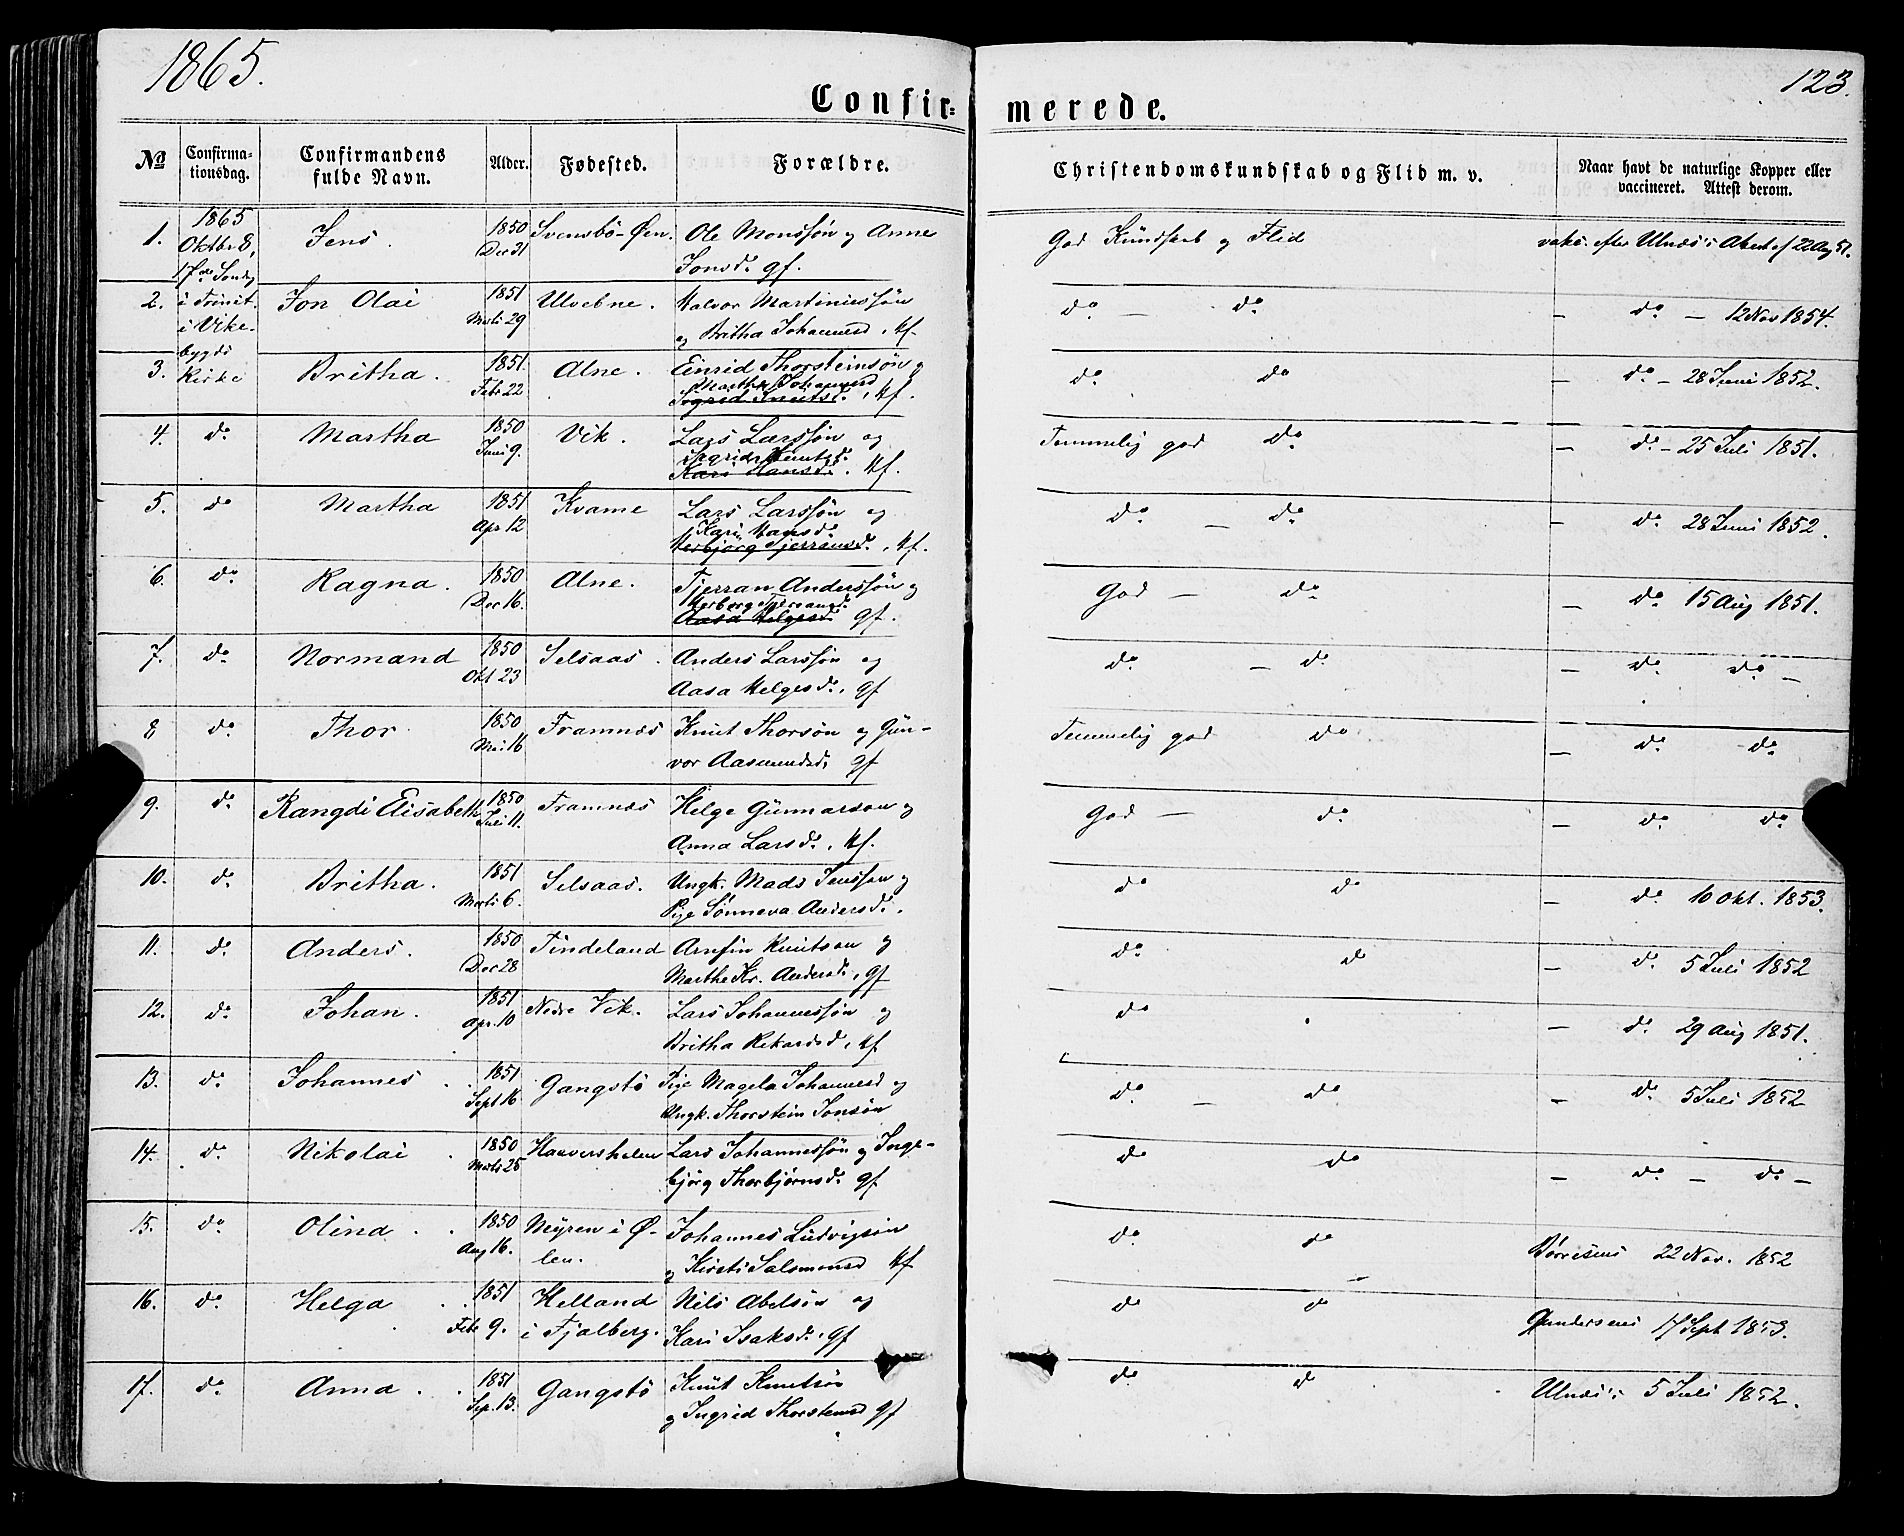 1865.
123.
Confir= merede.
No Confirma-tionsdag. Confirmandens fulde Navn. Alder. Fødested. Forældre. Christendomskundskab og Flid m. v. Naar havt de naturlige Kopper eller vaccineret. Attest derom.
1. 1865 Oktbr 8, 17de Sondg i Trinit. i Vike- bygds Kirke Jens. 1850 Dec 31 Svensbö-Øen. Ole Monssön og Anne
Jonsd. gf. God Kundskab og Flid vakc. efter Ulnæs's Attest af 22 Aug 51.
2. Jon Olai 1851 Marts 29 Ulvebne. Halvor Martinussön
og Britha Johannesd. Kf. do — do — do — 12 Nov 1854.
3. Britha. 1851 Febr 22 Alne. Einrid Thorsteinsön og
Martha Johannesd
Sigrid Knutsd. , Kf. do do do — 28 Juni 1852.
4. do Martha 1850 Juni 9. Vik. Lars Larssön og
Ingrid Knutsd.
Kari Hansd. . Kf. Temmelig god do — do — 25 Juli 1851.
5. do Martha 1851 Apr 12 Kvame Lars Larssön og
Kari Hansd.
Herbjörg Tjerransd. , Kf. do — do — do 28 Juni 1852.
6. do Ragna. 1850 Dec 16. Alne. Tjerran Anderssön og
Herborg Tjerrangd.
Aasa Helgesd. gf. God — do — do 15 Aug 1851.
7. do Normand 1850 Okt 23 Selsaas. Anders Larssön og
Aasa Helgesd. , gf do — do — do do —
8 do Thor 1850 Mai 16 Framnæs Knut Thorsön og Gun-
vor Aasmundsd, gf Temmelig god do — do do
9. do Rangdi Elisabeth 1850 Juli 11. Framnæs Helge Gunnarson og
Anna Larsd. , Kf. God — do — do do
10. do Britha. 1851 Marts 6. Selsaas. Ungk. Mads Jensson og
Pige Sönneva Andersd. . do do — do 10 Okt. 1853.
11. do Anders. 1850 Dec 28 Tindeland Arnfin Knutson og
Marthe Kr. Andersd. , gf do do — do 5 Juli 1852
12. do Johan. 1851 Apr. 10 Nedre Vik. Lars Johannessön og
Britha Rikardsd. , Kf do — do 29 Aug 1851.
13. do Johannes 1851 Sept 16 Gangstö Pige Magela Johannesd og
Ungk. Thorstein Jonsön do — do — do 5 Juli 1852
14. do Nikolai 1850 Marts 25 Lars Johannessön og Inge-
björg Thorbjörnsd. gf do do — do — do —
15. do Olina 1850 Aug 16. Myren i Ø-
len. Johannes Ludvigsön
og Kirsti Salomonsd Kf do do Børresens 22 Nov. 1852
16. do Helga 1851 Febr 9. Helland
i Fjalberg. Nils Abelsön og
Kari Isaksd. , gf do do Gundersens 17 Sept 1853.
17. do Anna 1851 Sep. 13. Gangstö Knut Knutsön
og Ingrid Thorstensd gf do do Ulnæs's 5 Juli 1852.